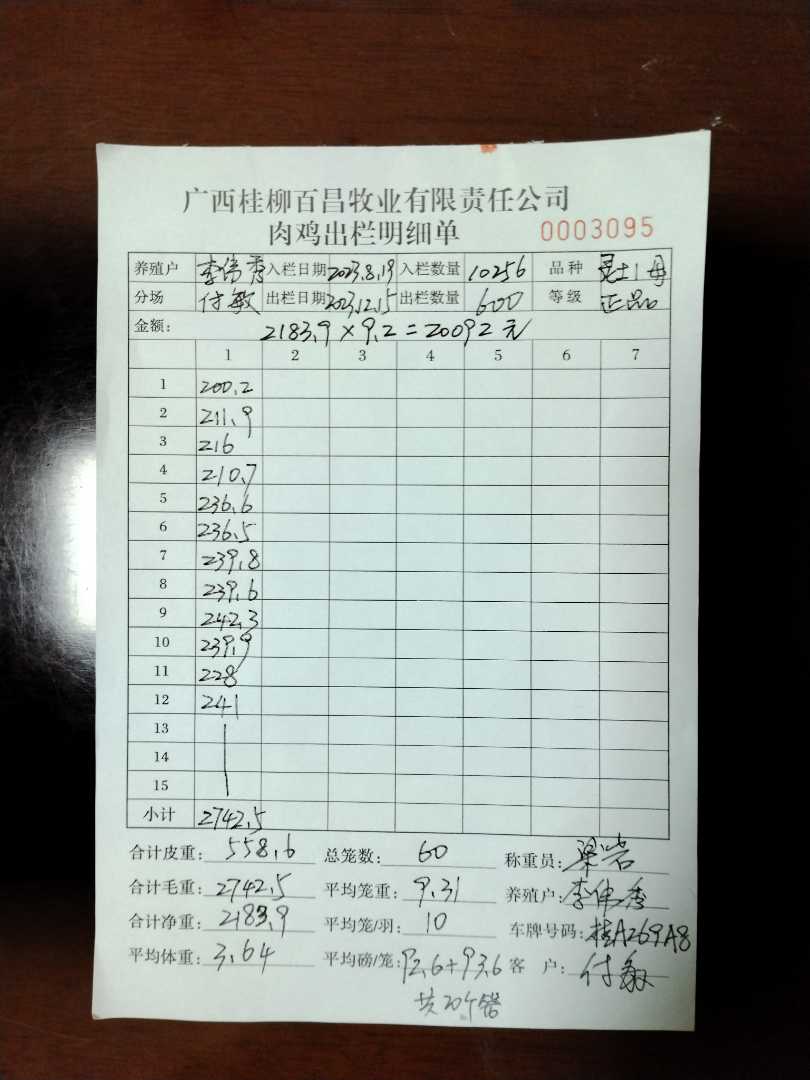 广西桂柳百昌牧业有限责任公司
肉鸡出栏明细单 0003095
养殖户 李伟秀 入栏日期 2023.8.19 入栏数量 10256 品种 土1母
分场 付敏 出栏日期 2023.12.15 出栏数量 600 等级 正品
金额: 2183.9×9.2=20092元
1 2 3 4 5 6 7
1 200.2
2 211.9
3 216
4 210.7
5 236.6
6 236.5
7 239.8
8 239.6
9 242.3
10 239.9
11 228
12 241
13
14
15
小计 2742.5
合计皮重: 558.6 总笼数: 60 称重员: 梁
合计毛重: 2742.5 平均笼重: 9.31 养殖户: 李伟秀
合计净重: 2183.9 平均笼/羽: 10 车牌号码: 桂A269A8
平均体重: 3.64 平均磅/笼: 92.6+93.6 客 户: 付敏
共20个